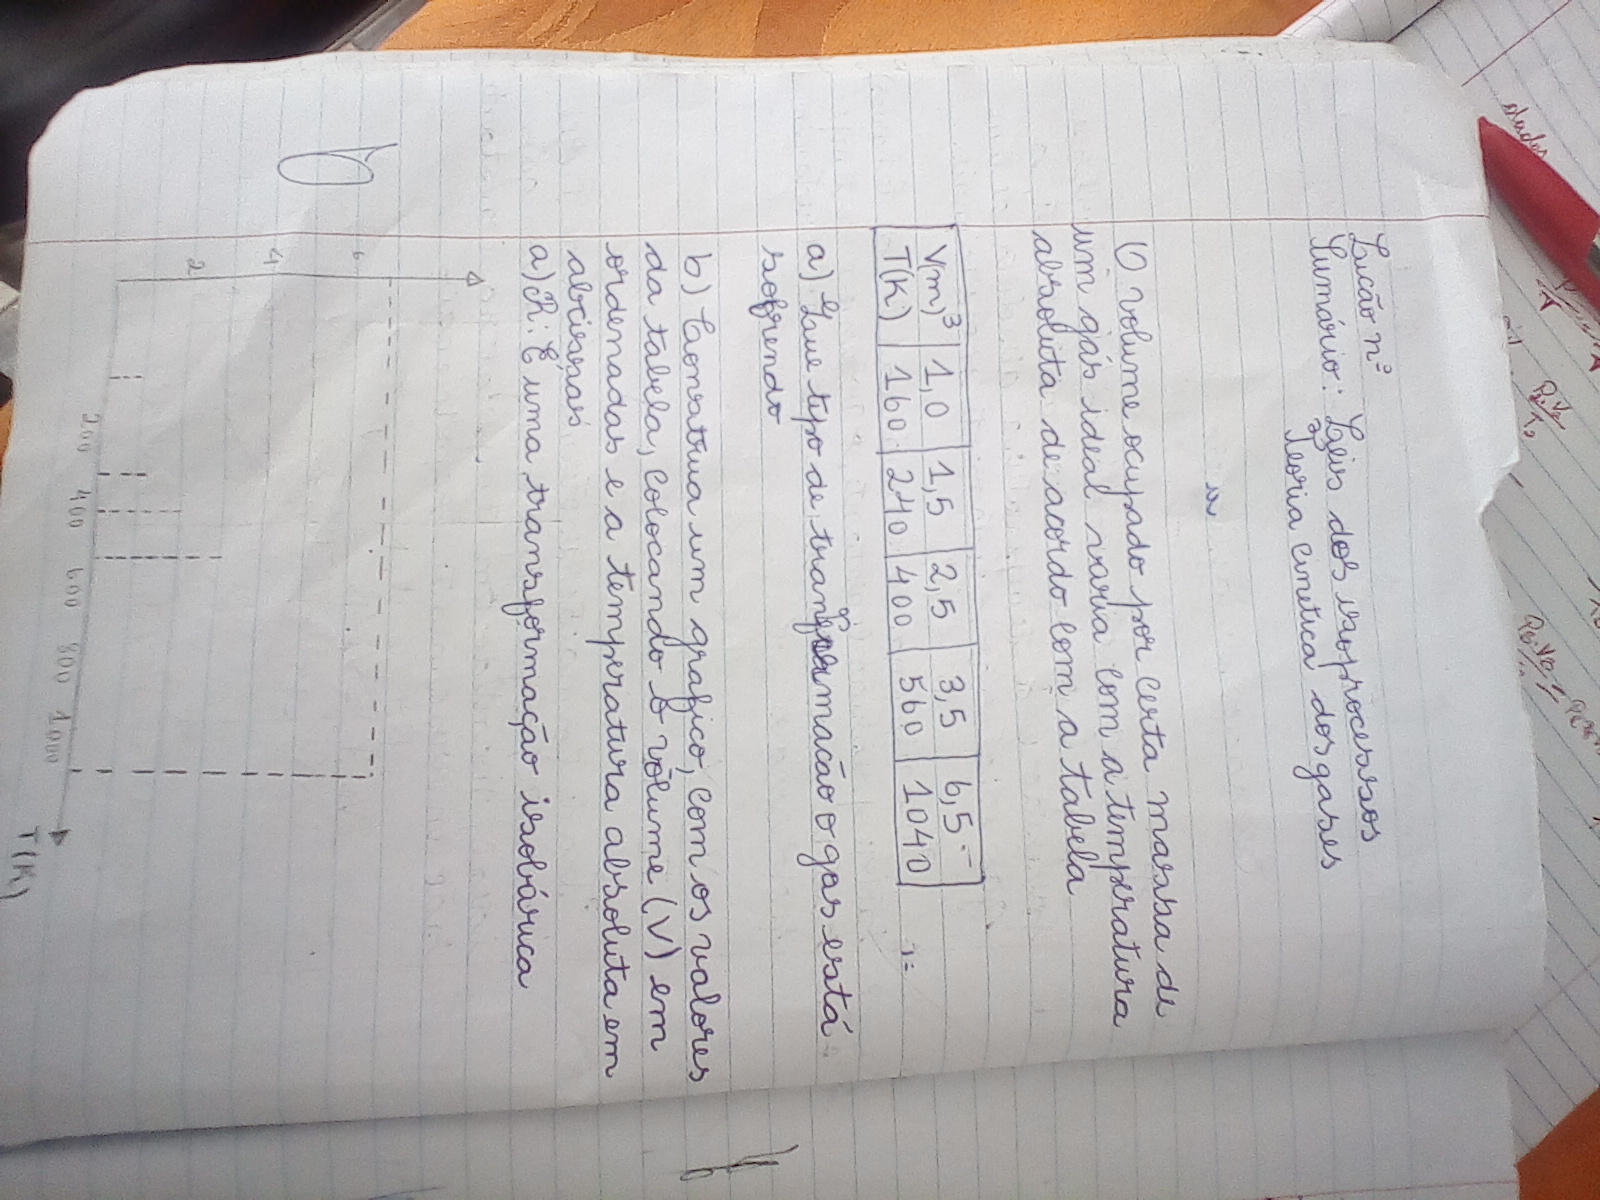 Lição nº
Sumário: Leis dos isoprocessos
Teoria cinetica dos gases
O volume ocupado por certa massa de
um gás ideal varia com a temperatura
absoluta de acordo com a tabela
V(m)³ 1,0 1,5 2,5 3,5 6,5
T(K) 160 240 400 560 1040
a) Que tipo de transformação o gas está
sofrendo
b) Construa um grafico, com os valores
da tabela, colocando o volume (V) em
ordenadas e a temperatura absoluta em
abcissas
a) R: É uma transformação isobárica
6
4
2
200 400 600 800 1000 T(K)
b
dados
P2.V2
T2